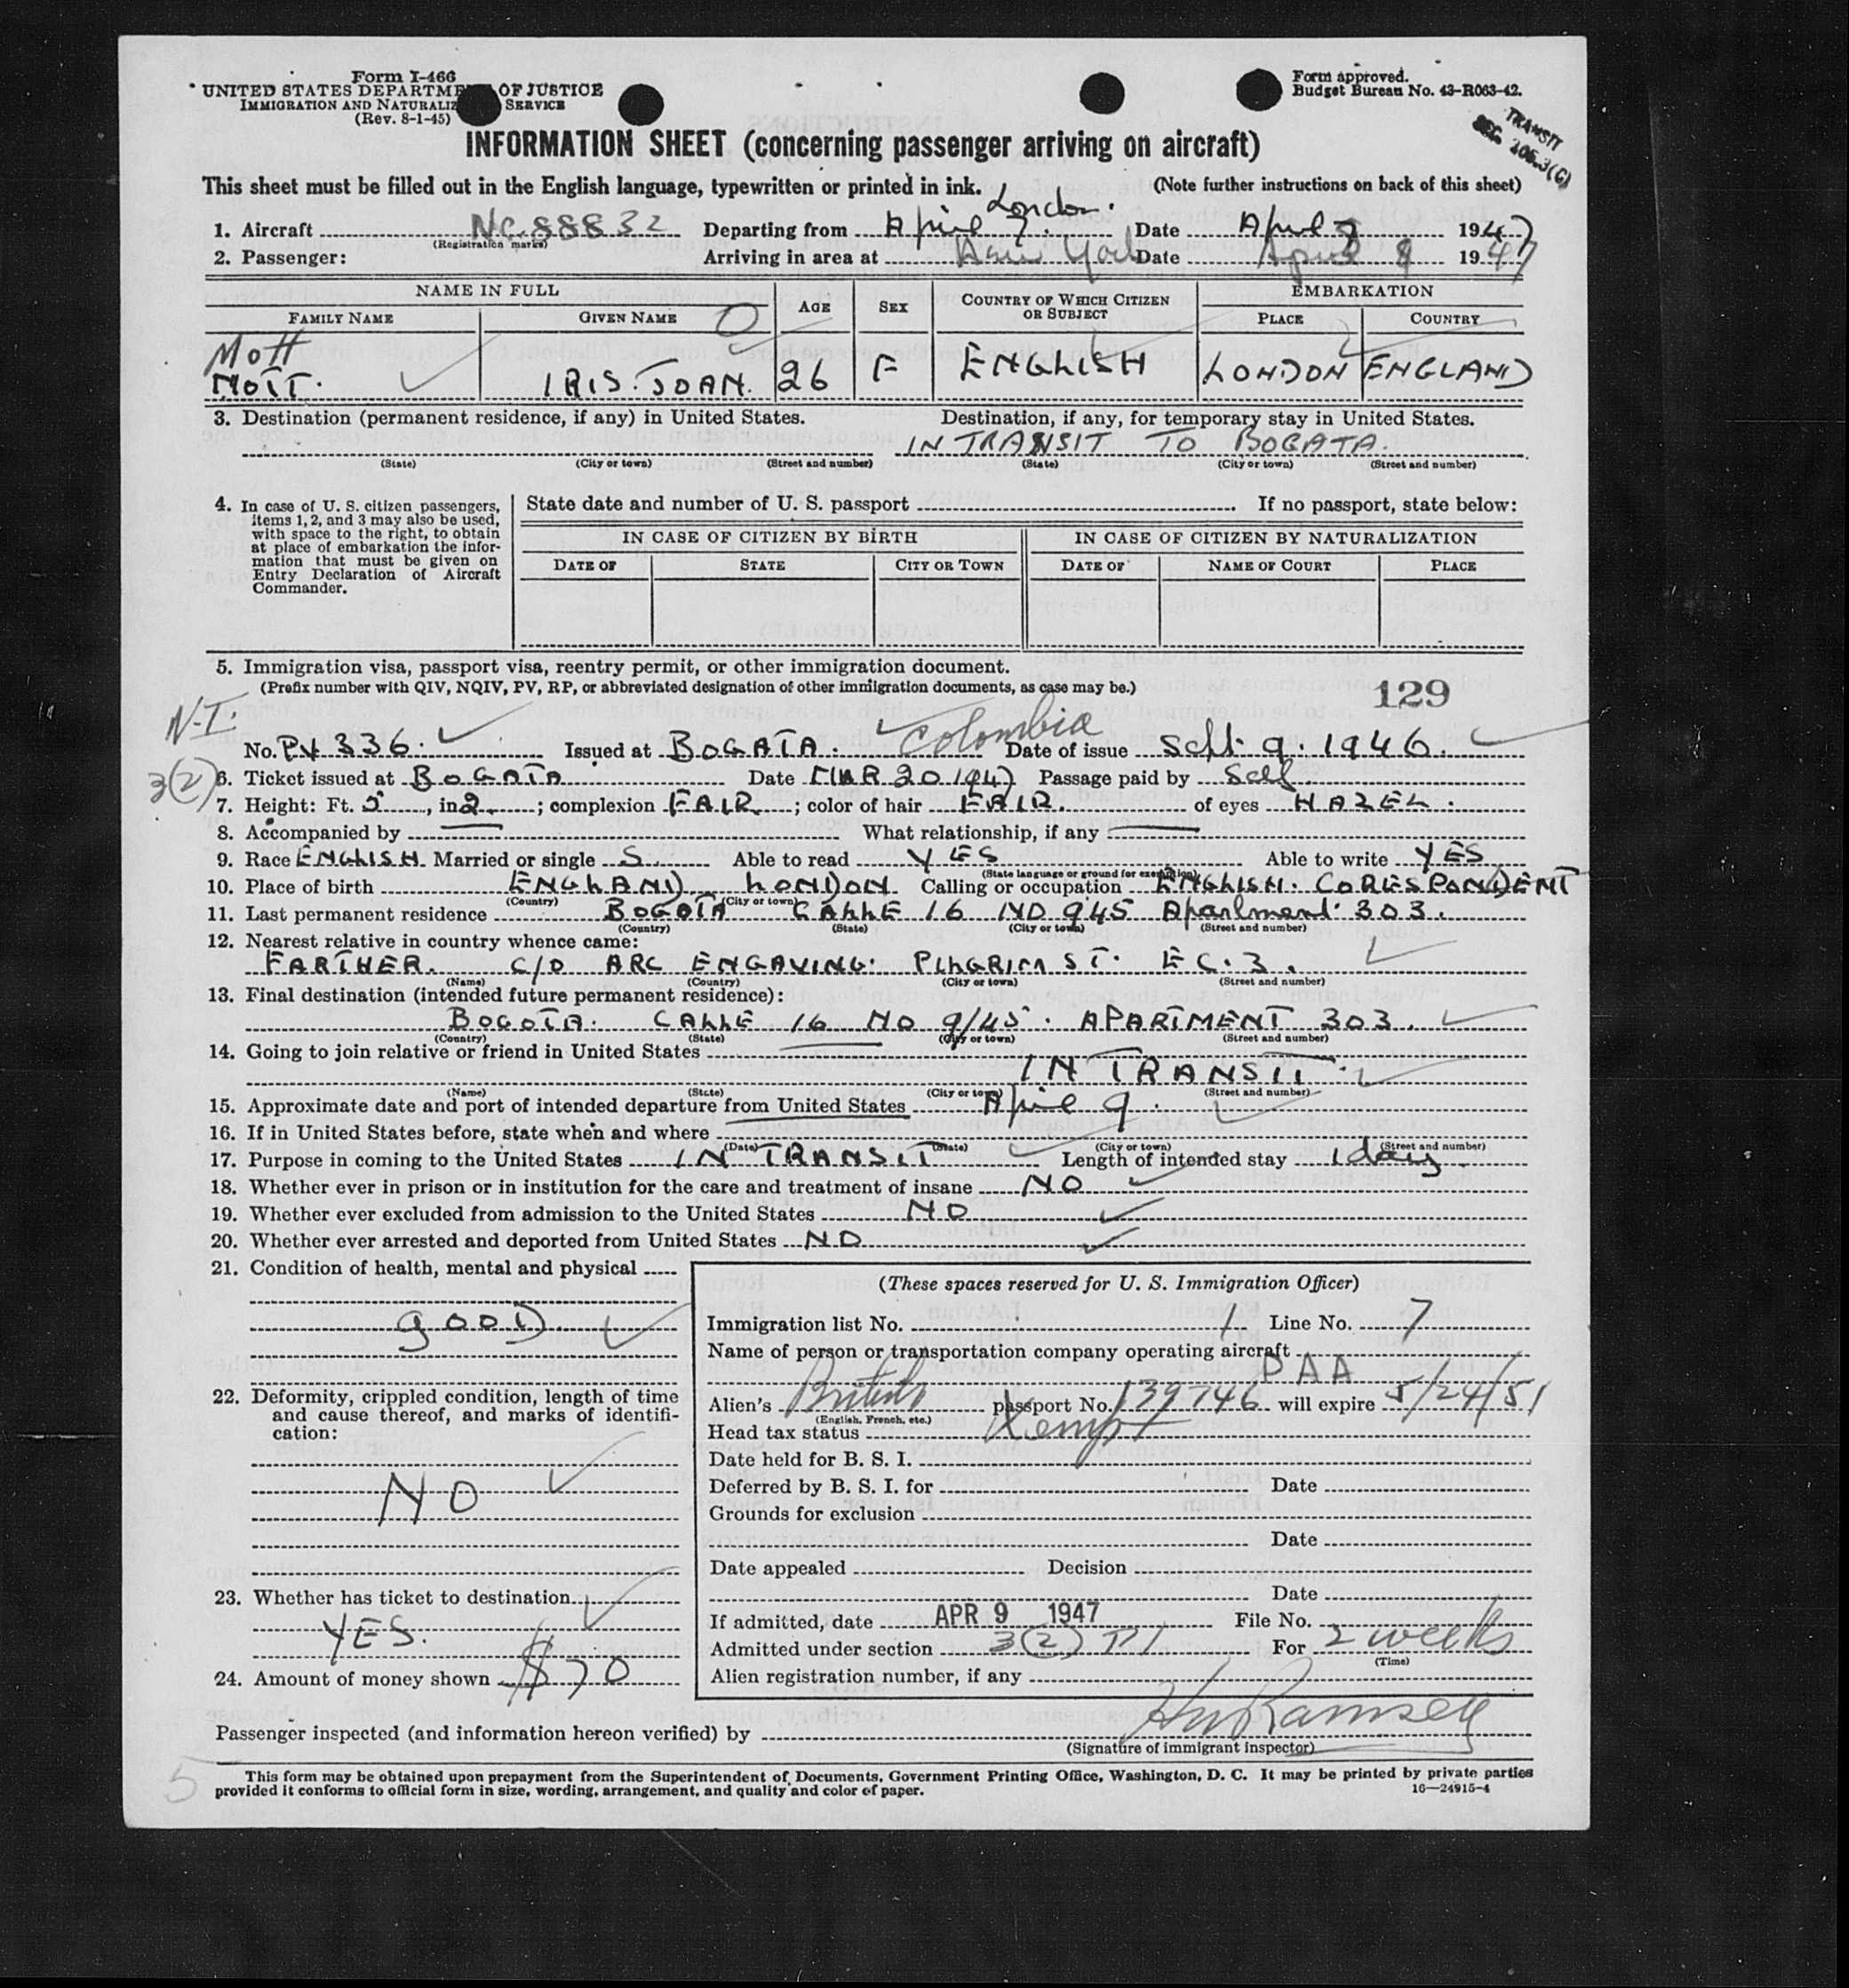 Form I-466
UNITED STATES DEPARTMENT OF JUSTICE
IMMIGRATION AND NATURALIZ SERVICE
(Rev. 8-1-45)
Form approved.
Budget Bureau No. 43-R063-42.
TRANSIT
SEC. 106.3(C)
INFORMATION SHEET (concerning passenger arriving on aircraft)
This sheet must be filled out in the English language, typewritten or printed in ink. (Note further instructions on back of this sheet)
London.
1. Aircraft NC.88832 Departing from April 7. Date April 7 1947
(Registration marks)
2. Passenger: Arriving in area at New York Date April 8 1947
NAME IN FULL AGE SEX COUNTRY OF WHICH CITIZEN OR SUBJECT EMBARKATION
FAMILY NAME GIVEN NAME PLACE COUNTRY
Mott
MOTT. IRIS. JOAN. 26 F ENGLISH LONDON ENGLAND
3. Destination (permanent residence, if any) in United States. Destination, if any, for temporary stay in United States.
IN TRANSIT TO BOGATA.
(State) (City or town) (Street and number) (State) (City or town) (Street and number)
4. In case of U. S. citizen passengers, items 1, 2, and 3 may also be used, with space to the right, to obtain at place of embarkation the information that must be given on Entry Declaration of Aircraft Commander.
State date and number of U. S. passport If no passport, state below:
IN CASE OF CITIZEN BY BIRTH IN CASE OF CITIZEN BY NATURALIZATION
DATE OF STATE CITY OR TOWN DATE OF NAME OF COURT PLACE
5. Immigration visa, passport visa, reentry permit, or other immigration document.
(Prefix number with QIV, NQIV, PV, RP, or abbreviated designation of other immigration documents, as case may be.)
129
N-I.
No. PV 336. Issued at BOGATA. Colombia Date of issue Sept 9. 1946.
3(2)
6. Ticket issued at BOGATA Date MAR 20 1947 Passage paid by Self
7. Height: Ft. 5, in 2; complexion FAIR; color of hair FAIR. of eyes HAZEL.
8. Accompanied by What relationship, if any
9. Race ENGLISH. Married or single S. Able to read YES Able to write YES
(State language or ground for exemption)
10. Place of birth ENGLAND LONDON Calling or occupation ENGLISH. CORESPONDENT
(Country) (City or town)
11. Last permanent residence BOGOTA CALLE 16 NO 945 Apartment 303.
(Country) (State) (City or town) (Street and number)
12. Nearest relative in country whence came:
FARTHER. C/O ARC ENGAVING. PILGRIM ST. E.C.3.
(Name) (Country) (City or town) (Street and number)
13. Final destination (intended future permanent residence):
BOGOTA. CALLE 16 NO 9/45. APARTMENT 303.
(Country) (State) (City or town) (Street and number)
14. Going to join relative or friend in United States
IN TRANSIT.
(Name) (State) (City or town) (Street and number)
15. Approximate date and port of intended departure from United States April 9.
16. If in United States before, state when and where
(Date) (State) (City or town) (Street and number)
17. Purpose in coming to the United States IN TRANSIT Length of intended stay 1 day.
18. Whether ever in prison or in institution for the care and treatment of insane NO
19. Whether ever excluded from admission to the United States NO
20. Whether ever arrested and deported from United States NO
21. Condition of health, mental and physical
GOOD.
22. Deformity, crippled condition, length of time and cause thereof, and marks of identification:
NO
23. Whether has ticket to destination
YES.
24. Amount of money shown $70
(These spaces reserved for U. S. Immigration Officer)
Immigration list No. 1 Line No. 7
Name of person or transportation company operating aircraft
PAA
Alien's British passport No. 139746 will expire 5/24/51
(English, French, etc.)
Head tax status Xempt
Date held for B. S. I.
Deferred by B. S. I. for Date
Grounds for exclusion
Date
Date appealed Decision
Date
If admitted, date APR 9 1947 File No.
Admitted under section 3(2) For 2 weeks
(Time)
Alien registration number, if any
Passenger inspected (and information hereon verified) by Ramsey
(Signature of immigrant inspector)
5
This form may be obtained upon prepayment from the Superintendent of Documents, Government Printing Office, Washington, D. C. It may be printed by private parties
provided it conforms to official form in size, wording, arrangement, and quality and color of paper. 16—24915-4